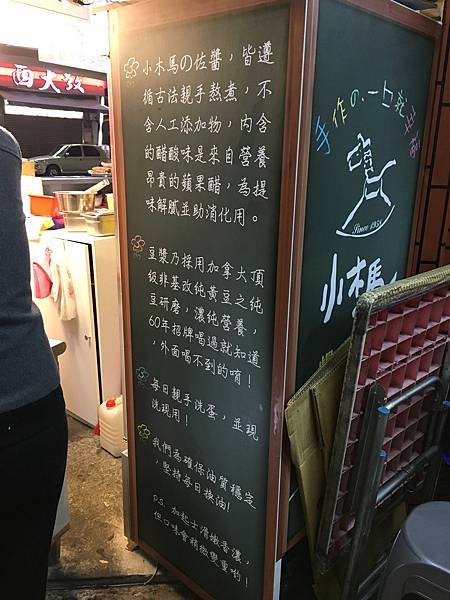 小木馬の佐醬，皆遵
循古法親手熬煮，不
含人工添加物，內含
的醋酸味是來自營養
昂貴的蘋果醋，為提
味解膩並助消化用。
豆漿乃採用加拿大頂
級非基改純黃豆之純
豆研磨，濃純營養，
60年招牌喝過就知道
，外面喝不到的唷！
每日親手洗蛋，並現
洗現用！
我們為確保油質穩定
，堅持每日換油！
P.S. 加起士滑嫩香濃，
但口味會稍微變重喲！
手作の
Since 1958
小木馬
西大教